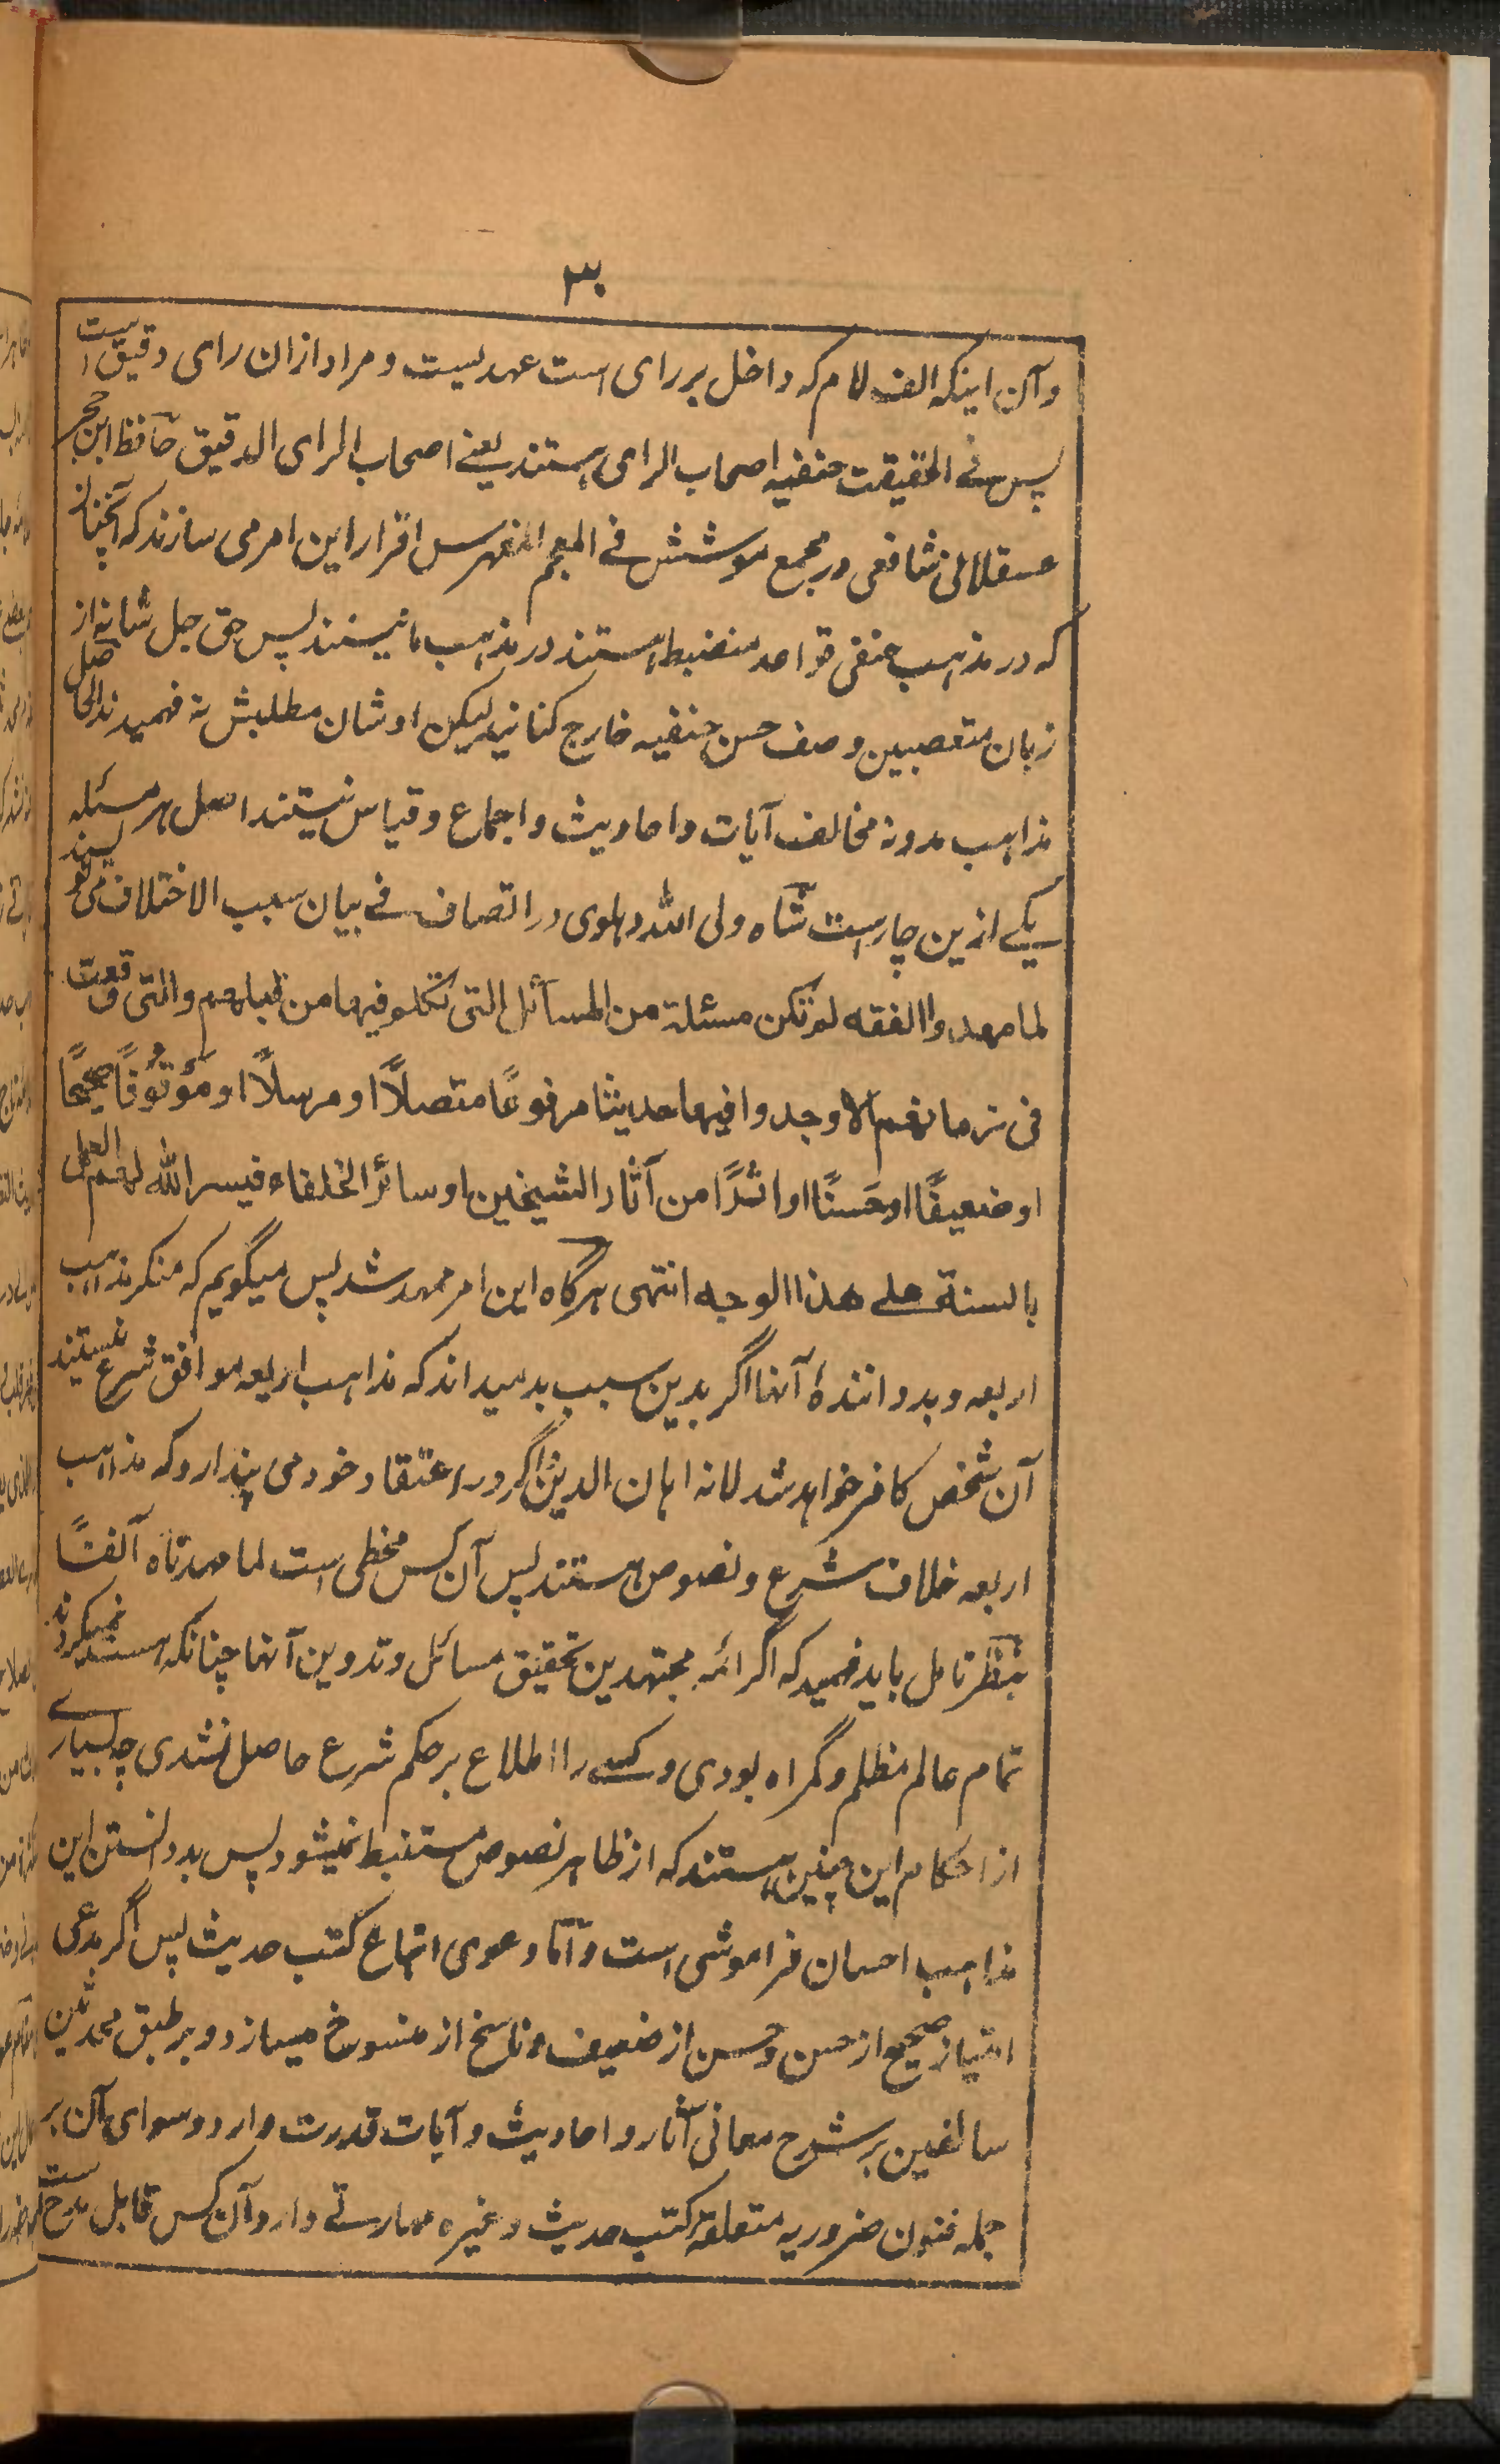 ۳۰
وآن اینکه الف لام که داخل بر رای است عهدیست و مراد ازان رای دقیق است
پس فی الحقیقت حنفیه اصحاب الرای هستند یعنے اصحاب الرای الدقیق حافظ ابن حجر
عسقلانی شافعی در مجمع موسش فی المعجم المفهرس اقرار این امر می سازند که آنچنانکه
که در مذهب حنفی قواعد منضبط هستند در مذهب ما نیستند پس حق جل شانه از
زبان متعصبین وصف حسن حنفیه خارج کنانید لیکن اوشان مطلبش نه فهمیدند الحاصل
مذاهب مدونه مخالف آیات و احادیث و اجماع و قیاس نیستند اصل هر مسئله
یکے ازین چار است شاه ولی الله دهلوی در انصاف فے بیان سبب الاختلاف می نویسند
لما مهدوا الفقه لم تکن مسئلة من المسائل التی تکلموا فیها من قبلهم والتی وقعت
فی زمانهم الا وجدوا فیها حدیثا مرفوعًا متصلًا او مرسلًا او موقوفًا صحیحًا
او ضعیفًا او حَسنًا او اثرًا من آثار الشیخین او سائر الخلفاء فیسر الله لهم العمل
بالسنة علے هذا الوجه انتهی هرگاه این امر ممهد شد پس میگویم که منکر مذاهب
اربعه و بد دانندهٔ آنها اگر بدین سبب بد میداند که مذاهب اربعه موافق شرع نیستند
آن شخص کافر خواهد شد لانه اهان الدین و اگر در اعتقاد خود می پندارد که مذاهب
اربعه خلاف شرع و نصوص هستند پس آن کس مخطی است لما مهدناه آنفًا
بنظر تامل باید فهمید که اگر ائمه مجتهدین تحقیق مسائل و تدوین آنها چنانکه هست نمیکردند
تمام عالم مظلم و گمراه بودی و کسے را اطلاع بر حکم شرع حاصل نشدی چه بسیارے
از احکام این چنین هستند که از ظاهر نصوص مستنبط نمیشود پس بد دانستن این
مذاهب احسان فراموشی است و اما دعوی اتباع کتب حدیث پس اگر مدعی
امتیاز صحیح از حسن و حسن از ضعیف و ناسخ از منسوخ میسازد و بر طبق محدثین
سالفین بر شرح معانی آثار و احادیث و آیات قدرت دارد و سوای آن بر
جمله فنون ضروریه متعلقهٔ کتب حدیث وغیره مهارتے دارد آن کس قابل مدح ست